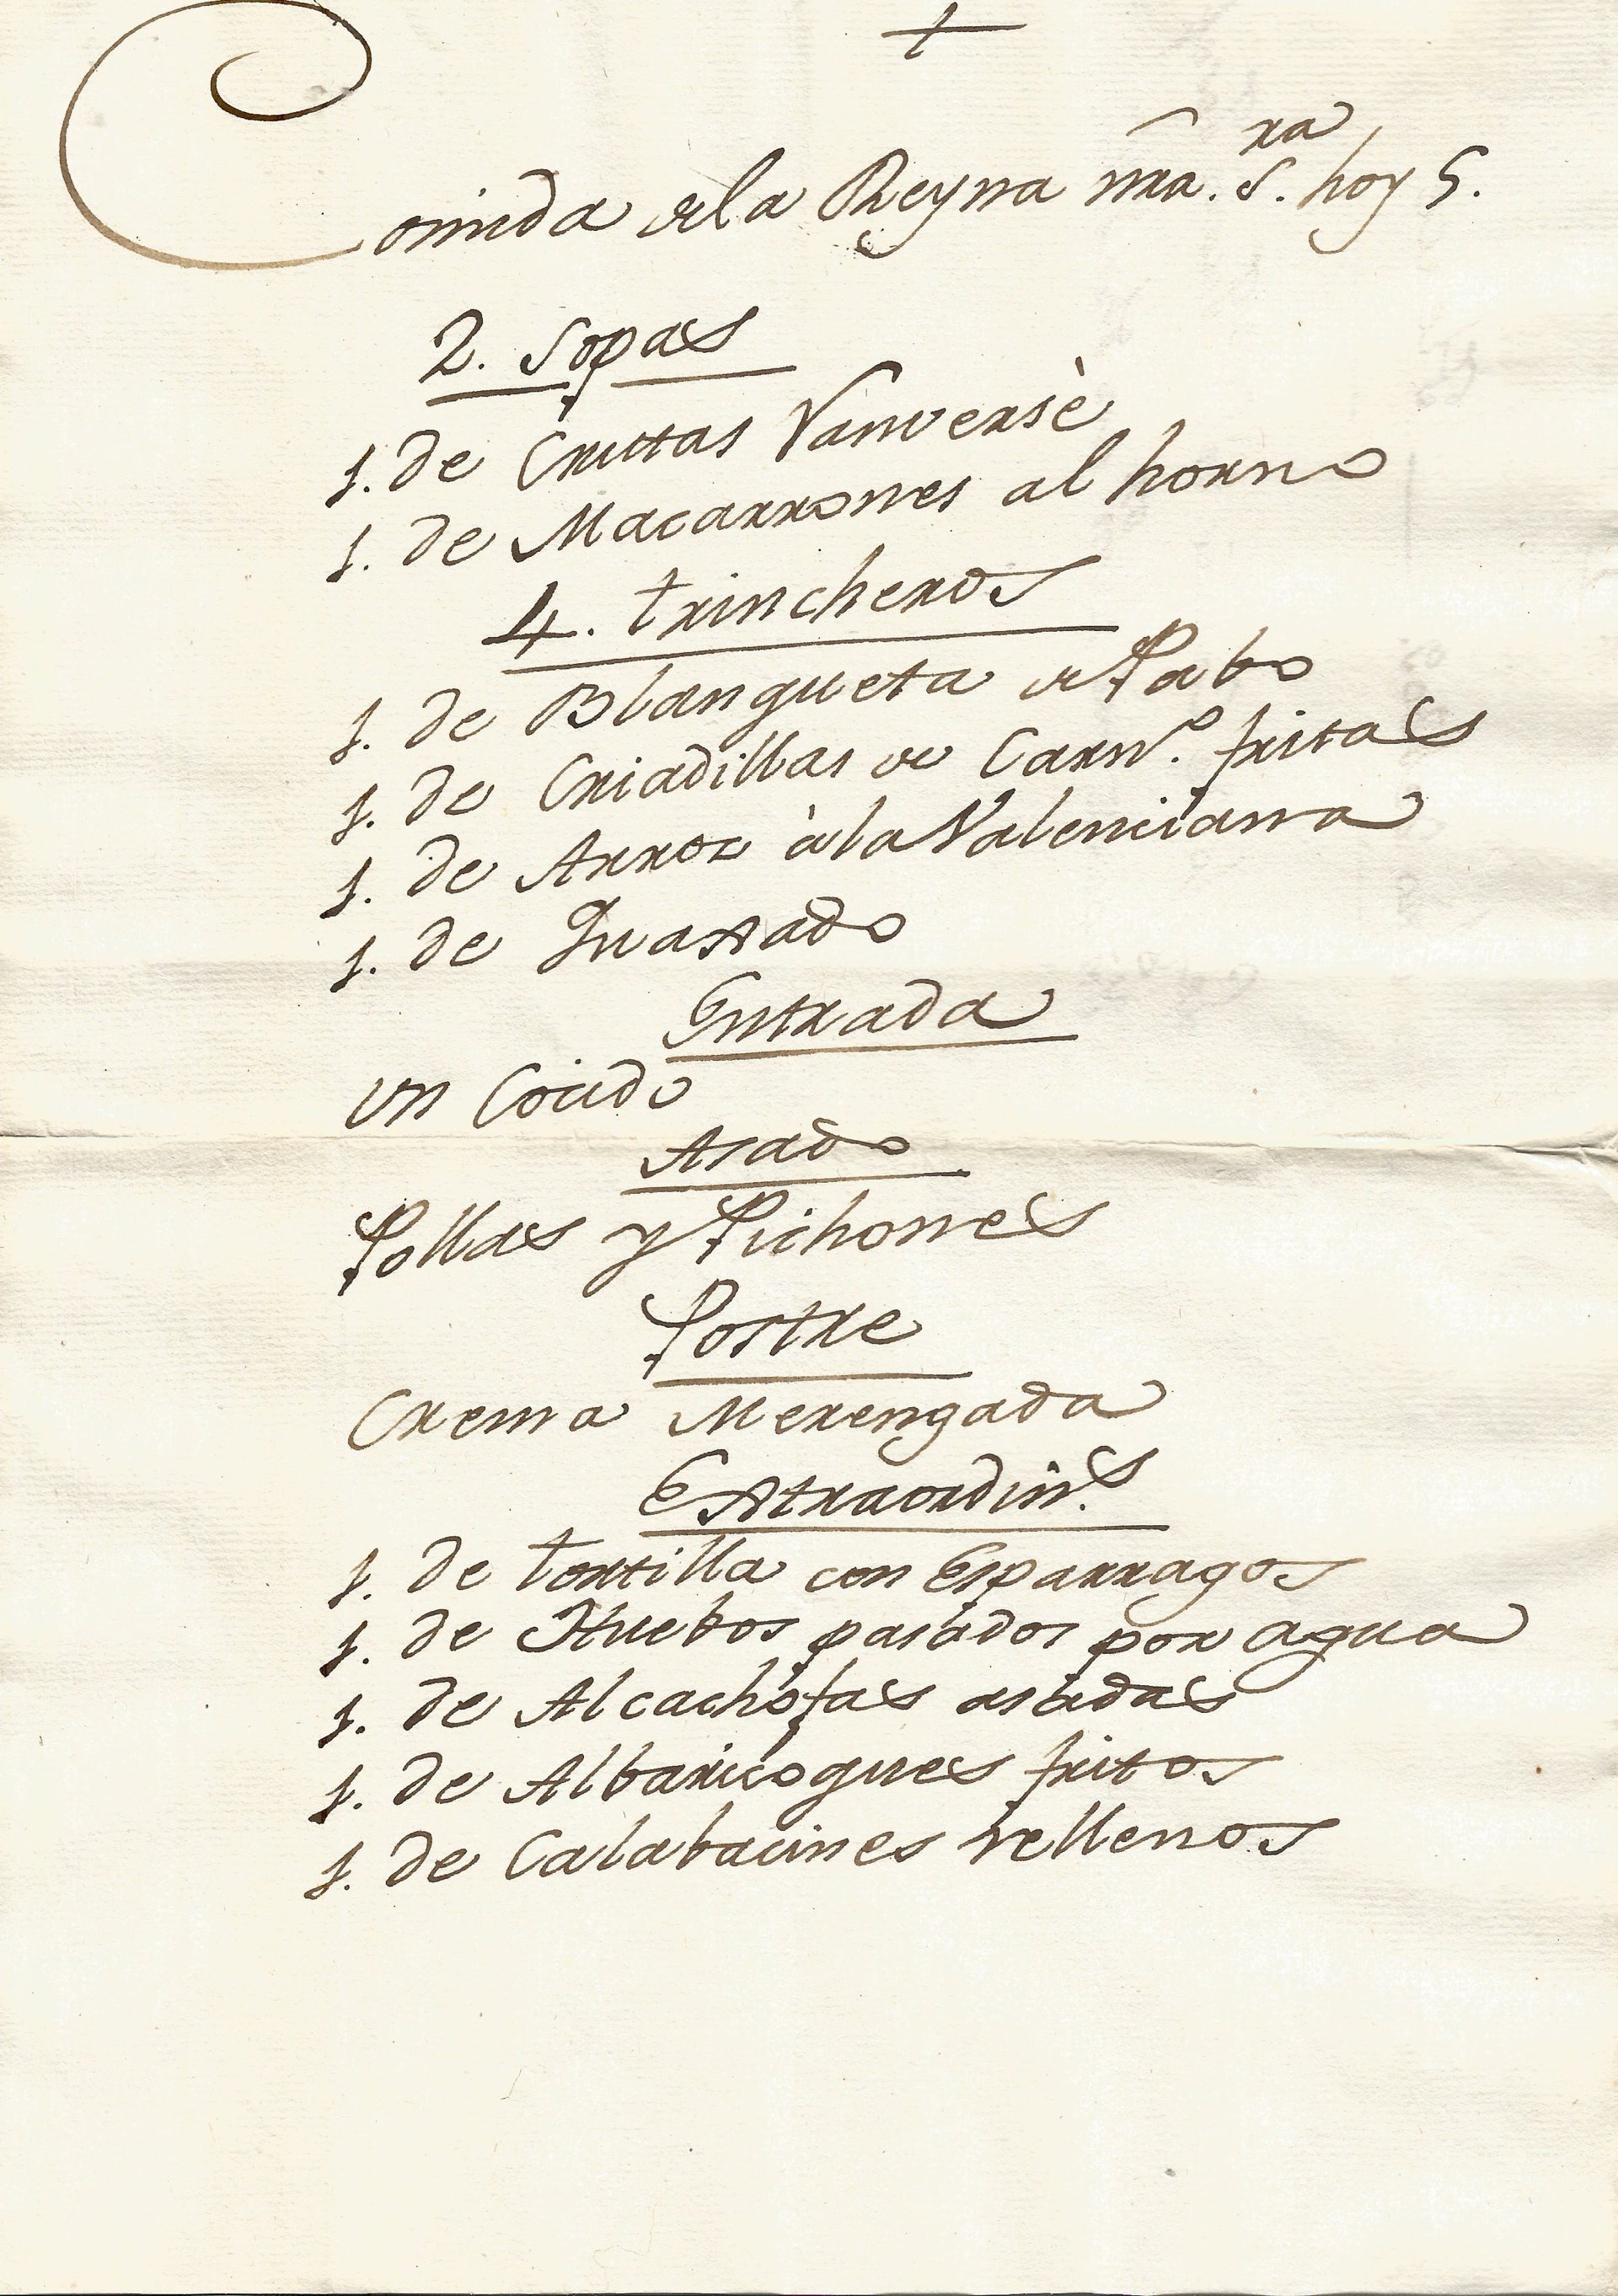 +
Comida de la Reyna nrã. S.ra hoy 5.
2. Sopas
1. de Cruttas Vanversè
1. de Macarrones al horno
4. trincheros
1. de Blangueta de Pabo
1. de Criadillas de Carn.o fritas
1. de Arroz à la Valenciana
1. de Guasado
Entrada
un Cocido
Asado
Pollas y Pichones
Postre
Crema Merengada
Extraordin.s
1. de tortilla con Esparragos
1. de Huebos pasados por agua
1. de Alcachofas asadas
1. de Albaricoques fritos
1. de Calabacines rellenos